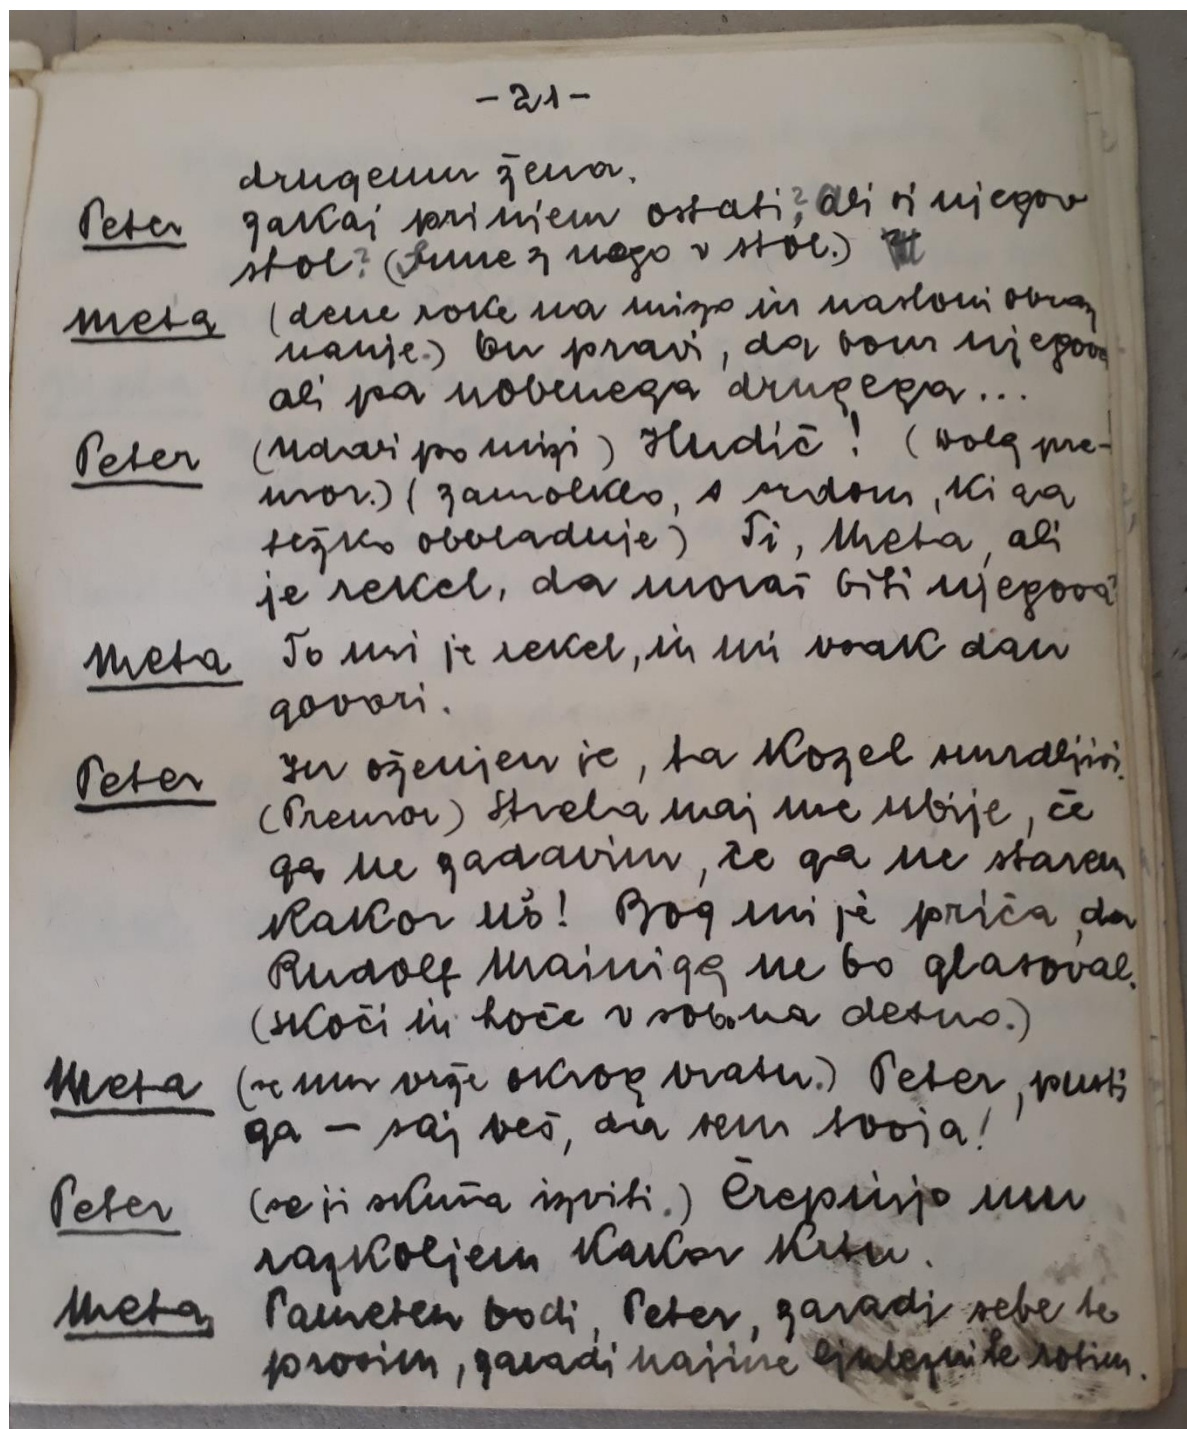 - 21 -
drugemu žena.
Peter zakaj pri njem ostati? Ali si njegov
stol? (Sune z nogo v stol.)
Meta (dene roke na mizo in nasloni obraz
nanje.) On pravi, da bom njegova
ali pa nobenega drugega...
Peter (Udari po mizi) Hudič! (Dolg pre-
mor.) (zamolklo, s srdom, ki ga
težko obvladuje) Ti, Meta, ali
je rekel, da moraš biti njegova?
Meta To mi je rekel, in mi vsak dan
govori.
Peter In oženjen je, ta kozel smrdljivi.
(Premor) Strela naj me ubije, če
ga ne zadavim, če ga ne starem
kakor uš! Bog mi je priča, da
Rudolf Mainigg ne bo glasoval.
(skoči in hoče v sobo na desno.)
Meta (se mu vrže okrog vratu.) Peter, pusti
ga - saj veš, da sem tvoja!
Peter (se ji skuša izviti.) Črepinjo mu
razkoljem kakor krtu.
Meta Pameten bodi, Peter, zaradi sebe te
prosim, zaradi najine ljubezni te rotim.